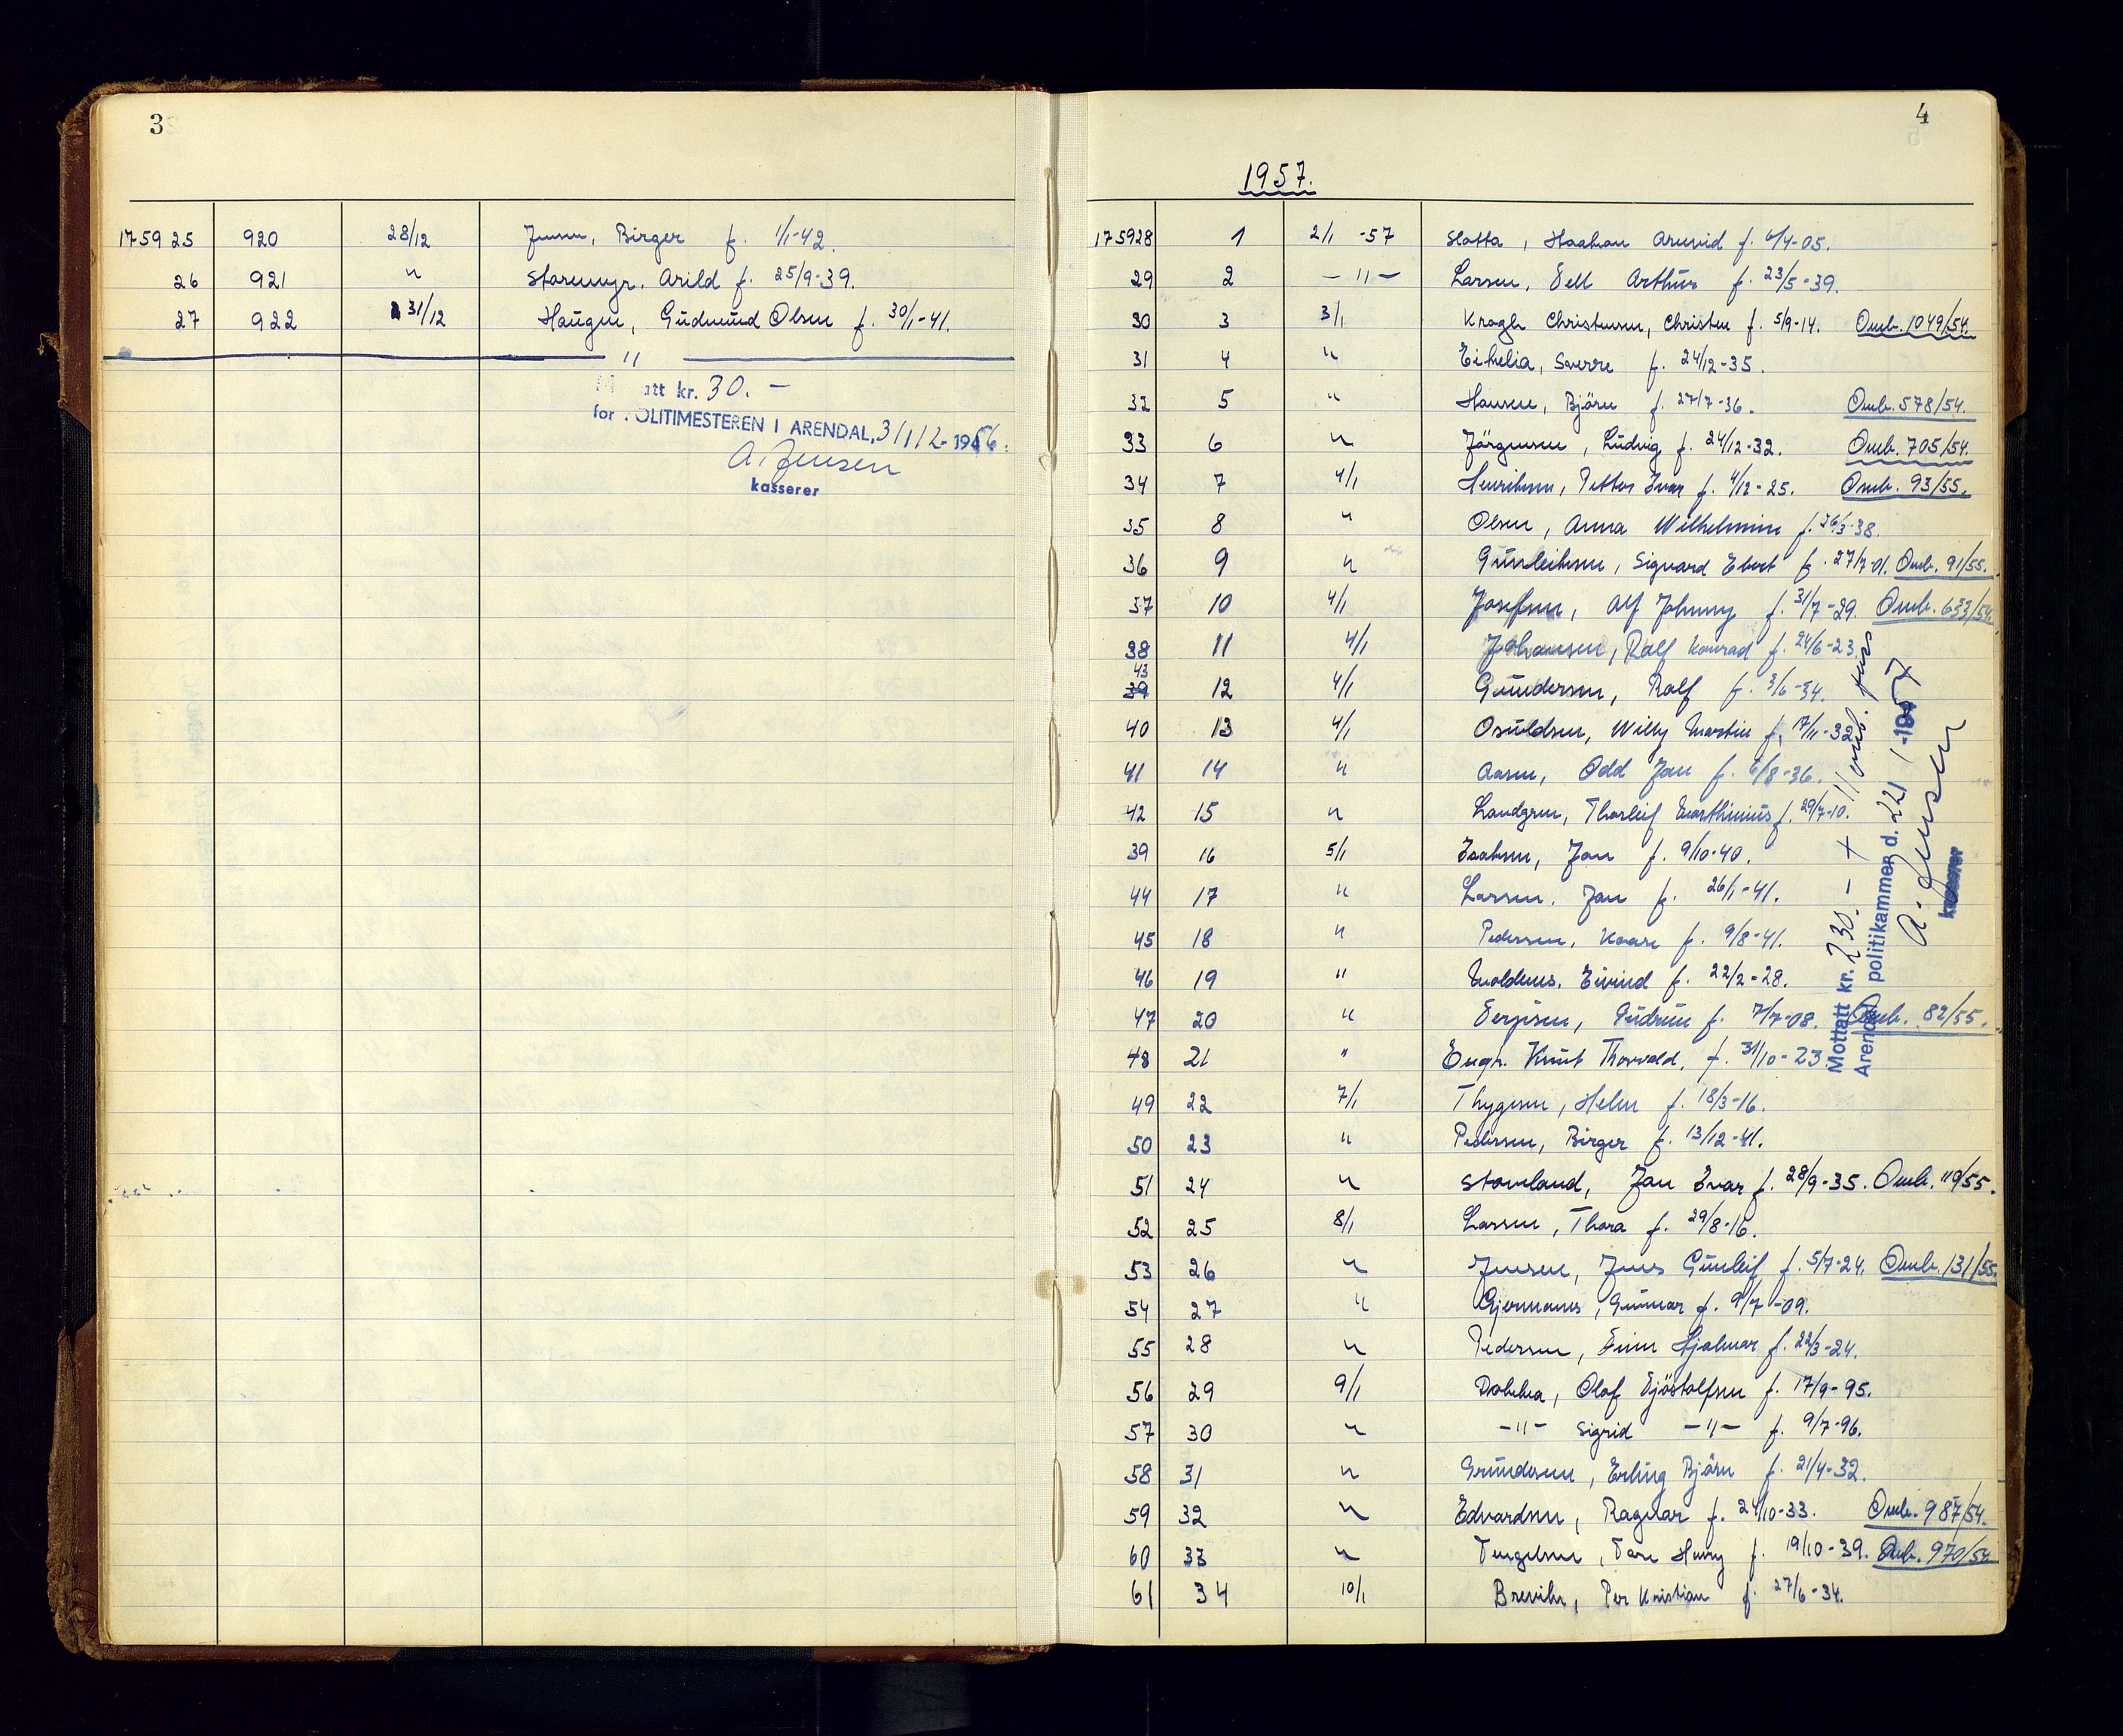 3
175925 920 28/12 Jensen, Birger f. 1/1-42.
26 921 " Staremyr, Arild f. 25/9-39.
27 922 31/12 Haugen, Gudmund Olsen f. 30/1-41.
"
att kr. 30. -
for POLITIMESTEREN I ARENDAL, 31/12-1956.
A. Jensen
kasserer
4
1957.
175928 1 2/1 -57 Slotta, Haakon Arnvid f. 6/4-05.
29 2 -"- Larsen, Kell Arthur f. 23/5-39.
30 3 3/1 Kragh Christensen, Christen f. 5/9-14. Omb. 1049/54.
31 4 " Eikelia, Sverre f. 24/12-35.
32 5 " Hansen, Björn f. 27/7-36. Omb. 578/54.
33 6 " Jörgensen, Ludvig f. 24/12-32. Omb. 705/54.
34 7 4/1 Henriksen, Petter Ivar f. 4/12-25. Omb. 93/55.
35 8 " Olsen, Anna Wilhelmine f. 26/3-38.
36 9 " Gunleiksen, Sigvard Ebert f. 27/7-01. Omb. 91/55.
37 10 4/1 Josefsen, Alf Johnny f. 31/7-29. Omb. 633/54.
38 11 4/1 Johansen, Ralf Konrad f. 24/6-23.
43
39 12 4/1 Gundersen, Ralf f. 3/6-34.
40 13 4/1 Osuldsen, Willy Martin f. 17/11-32.
41 14 " Aasen, Odd Jan f. 6/8-36.
42 15 " Landgren, Thorleif Marthinius f. 29/7-10.
39 16 5/1 Isaksen, Jan f. 9/10-40.
44 17 " Larsen, Jan f. 26/1-41.
45 18 " Pedersen, Kaare f. 9/8-41.
46 19 " Moldenes, Eivind f. 22/2-28.
47 20 " Terjesen, Gudrun f. 7/7-08. Omb. 82/55.
48 21 " Enger, Knut Thorvald, f. 31/10-23
49 22 7/1 Thygesen, Helen f. 18/3-16.
50 23 " Pedersen, Birger f. 13/12-41.
51 24 " Staveland, Jan Ivar f. 28/9-35. Omb. 119/55.
52 25 8/1 Larsen, Thora f. 29/8-16.
53 26 " Jensen, Jens Gunleif f. 5/7-24. Omb. 131/55.
54 27 " Gjermanes, Gunnar f. 9/7-09.
55 28 " Pedersen, Finn Hjalmar f. 22/3-24.
56 29 9/1 Dalehea, Olaf Kjöstolfsen f. 17/9-95.
57 30 " -"- Sigrid -"- f. 9/7-96.
58 31 " Gundersen, Erling Björn f. 21/4-32.
59 32 " Edvardsen, Ragnar f. 24/10-33. Omb. 987/54.
60 33 " Tengelsen, Tore Henry f. 19/10-39. Omb. 970/54
61 34 10/1 Brevik, Per Kristian f. 27/6-34.
Mottatt kr. 230.- + 11 omb.
Arendal politikammer d. 22/1-1957
A. Jensen
kasserer